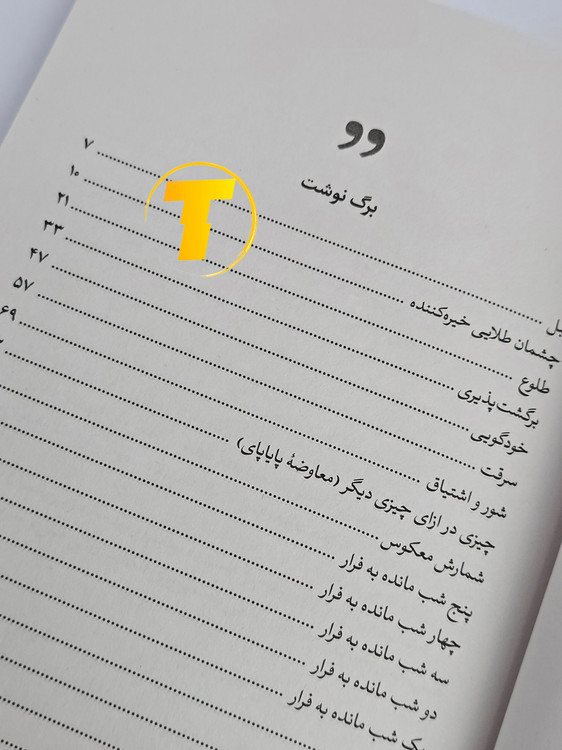 برگ نوشت
۷
چشمان طلایی خیره‌کننده ........ ۱۰
طلوع ........ ۲۱
برگشت‌پذیری ........ ۳۳
خودگویی ........ ۴۷
سرقت ........ ۵۷
شور و اشتیاق ........ ۶۹
چیزی در ازای چیزی دیگر (معاوضهٔ پایاپای) ........
شمارش معکوس ........
پنج شب مانده به فرار ........
چهار شب مانده به فرار ........
سه شب مانده به فرار ........
دو شب مانده به فرار ........
شب مانده به فرار ........
T